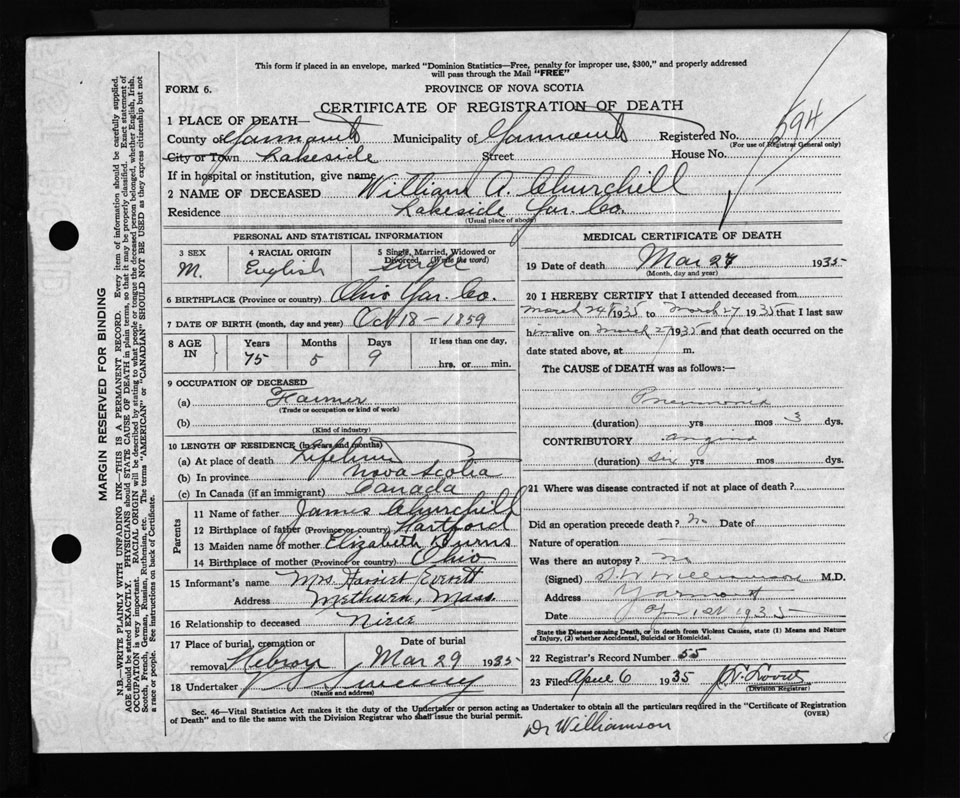 This form if placed in an envelope, marked "Dominion Statistics—Free, penalty for improper use, $300," and properly addressed
will pass through the Mail "FREE"
FORM 6.
PROVINCE OF NOVA SCOTIA
CERTIFICATE OF REGISTRATION OF DEATH
1 PLACE OF DEATH—
County of Yarmouth Municipality of Yarmouth Registered No. 594
(For use of Registrar General only)
City or Town Lakeside Street House No.
If in hospital or institution, give name
2 NAME OF DECEASED William A. Churchill
Residence Lakeside Yar. Co.
(Usual place of abode)
PERSONAL AND STATISTICAL INFORMATION
3 SEX 4 RACIAL ORIGIN 5 Single, Married, Widowed or Divorced, (Write the word)
M. English Single
6 BIRTHPLACE (Province or country) Ohio Yar. Co.
7 DATE OF BIRTH (month, day and year) Oct 18 - 1859
8 AGE IN Years Months Days If less than one day,
75 5 9 hrs. or min.
9 OCCUPATION OF DECEASED
(a) Farmer
(Trade or occupation or kind of work)
(b)
(Kind of industry)
10 LENGTH OF RESIDENCE (in years and months)
(a) At place of death Lifetime
(b) In province Nova Scotia
(c) In Canada (if an immigrant) Canada
Parents
11 Name of father James Churchill
12 Birthplace of father (Province or country) Hartford
13 Maiden name of mother Elizabeth Burns
14 Birthplace of mother (Province or country) Ohio
15 Informant's name Mrs Harriet Everett
Address Methuen, Mass.
16 Relationship to deceased Niece
17 Place of burial, cremation or removal Hebron Date of burial Mar 29 1935
18 Undertaker V S Sweeny
(Name and address)
MEDICAL CERTIFICATE OF DEATH
19 Date of death Mar 27 1935
(Month, day and year)
20 I HEREBY CERTIFY that I attended deceased from
March 24 1935 to March 27 1935 that I last saw
him alive on March 27 1935 and that death occurred on the
date stated above, at m.
The CAUSE of DEATH was as follows:—
Pneumonia
(duration) yrs mos 3 dys.
CONTRIBUTORY angina
(duration) six yrs mos dys.
21 Where was disease contracted if not at place of death?
Did an operation precede death? no Date of
Nature of operation
Was there an autopsy? no
(Signed) Williamson M.D.
Address Yarmouth
Date Apr 1st 1935
State the Disease causing Death, or in death from Violent Causes, state (1) Means and Nature
of Injury, (2) whether Accidental, Suicidal or Homicidal.
22 Registrar's Record Number 55
23 Filed April 6 1935
(Division Registrar)
Sec. 46—Vital Statistics Act makes it the duty of the Undertaker or person acting as Undertaker to obtain all the particulars required in the "Certificate of Registration
of Death" and to file the same with the Division Registrar who shall issue the burial permit.
(OVER)
Dr Williamson
MARGIN RESERVED FOR BINDING
N.B.—WRITE PLAINLY WITH UNFADING INK—THIS IS A PERMANENT RECORD. Every item of information should be carefully supplied.
AGE should be stated EXACTLY. PHYSICIANS should STATE CAUSE OF DEATH in plain terms, so that it may be properly classified. Exact statement of
OCCUPATION is very important. RACIAL ORIGIN will be described by stating to what people or tongue the deceased person belonged, whether English, Irish,
Scotch, French, German, Russian, Ruthenian, etc. The terms "AMERICAN" or "CANADIAN" SHOULD NOT BE USED as they express citizenship but not
a race or people. See instructions on back of Certificate.